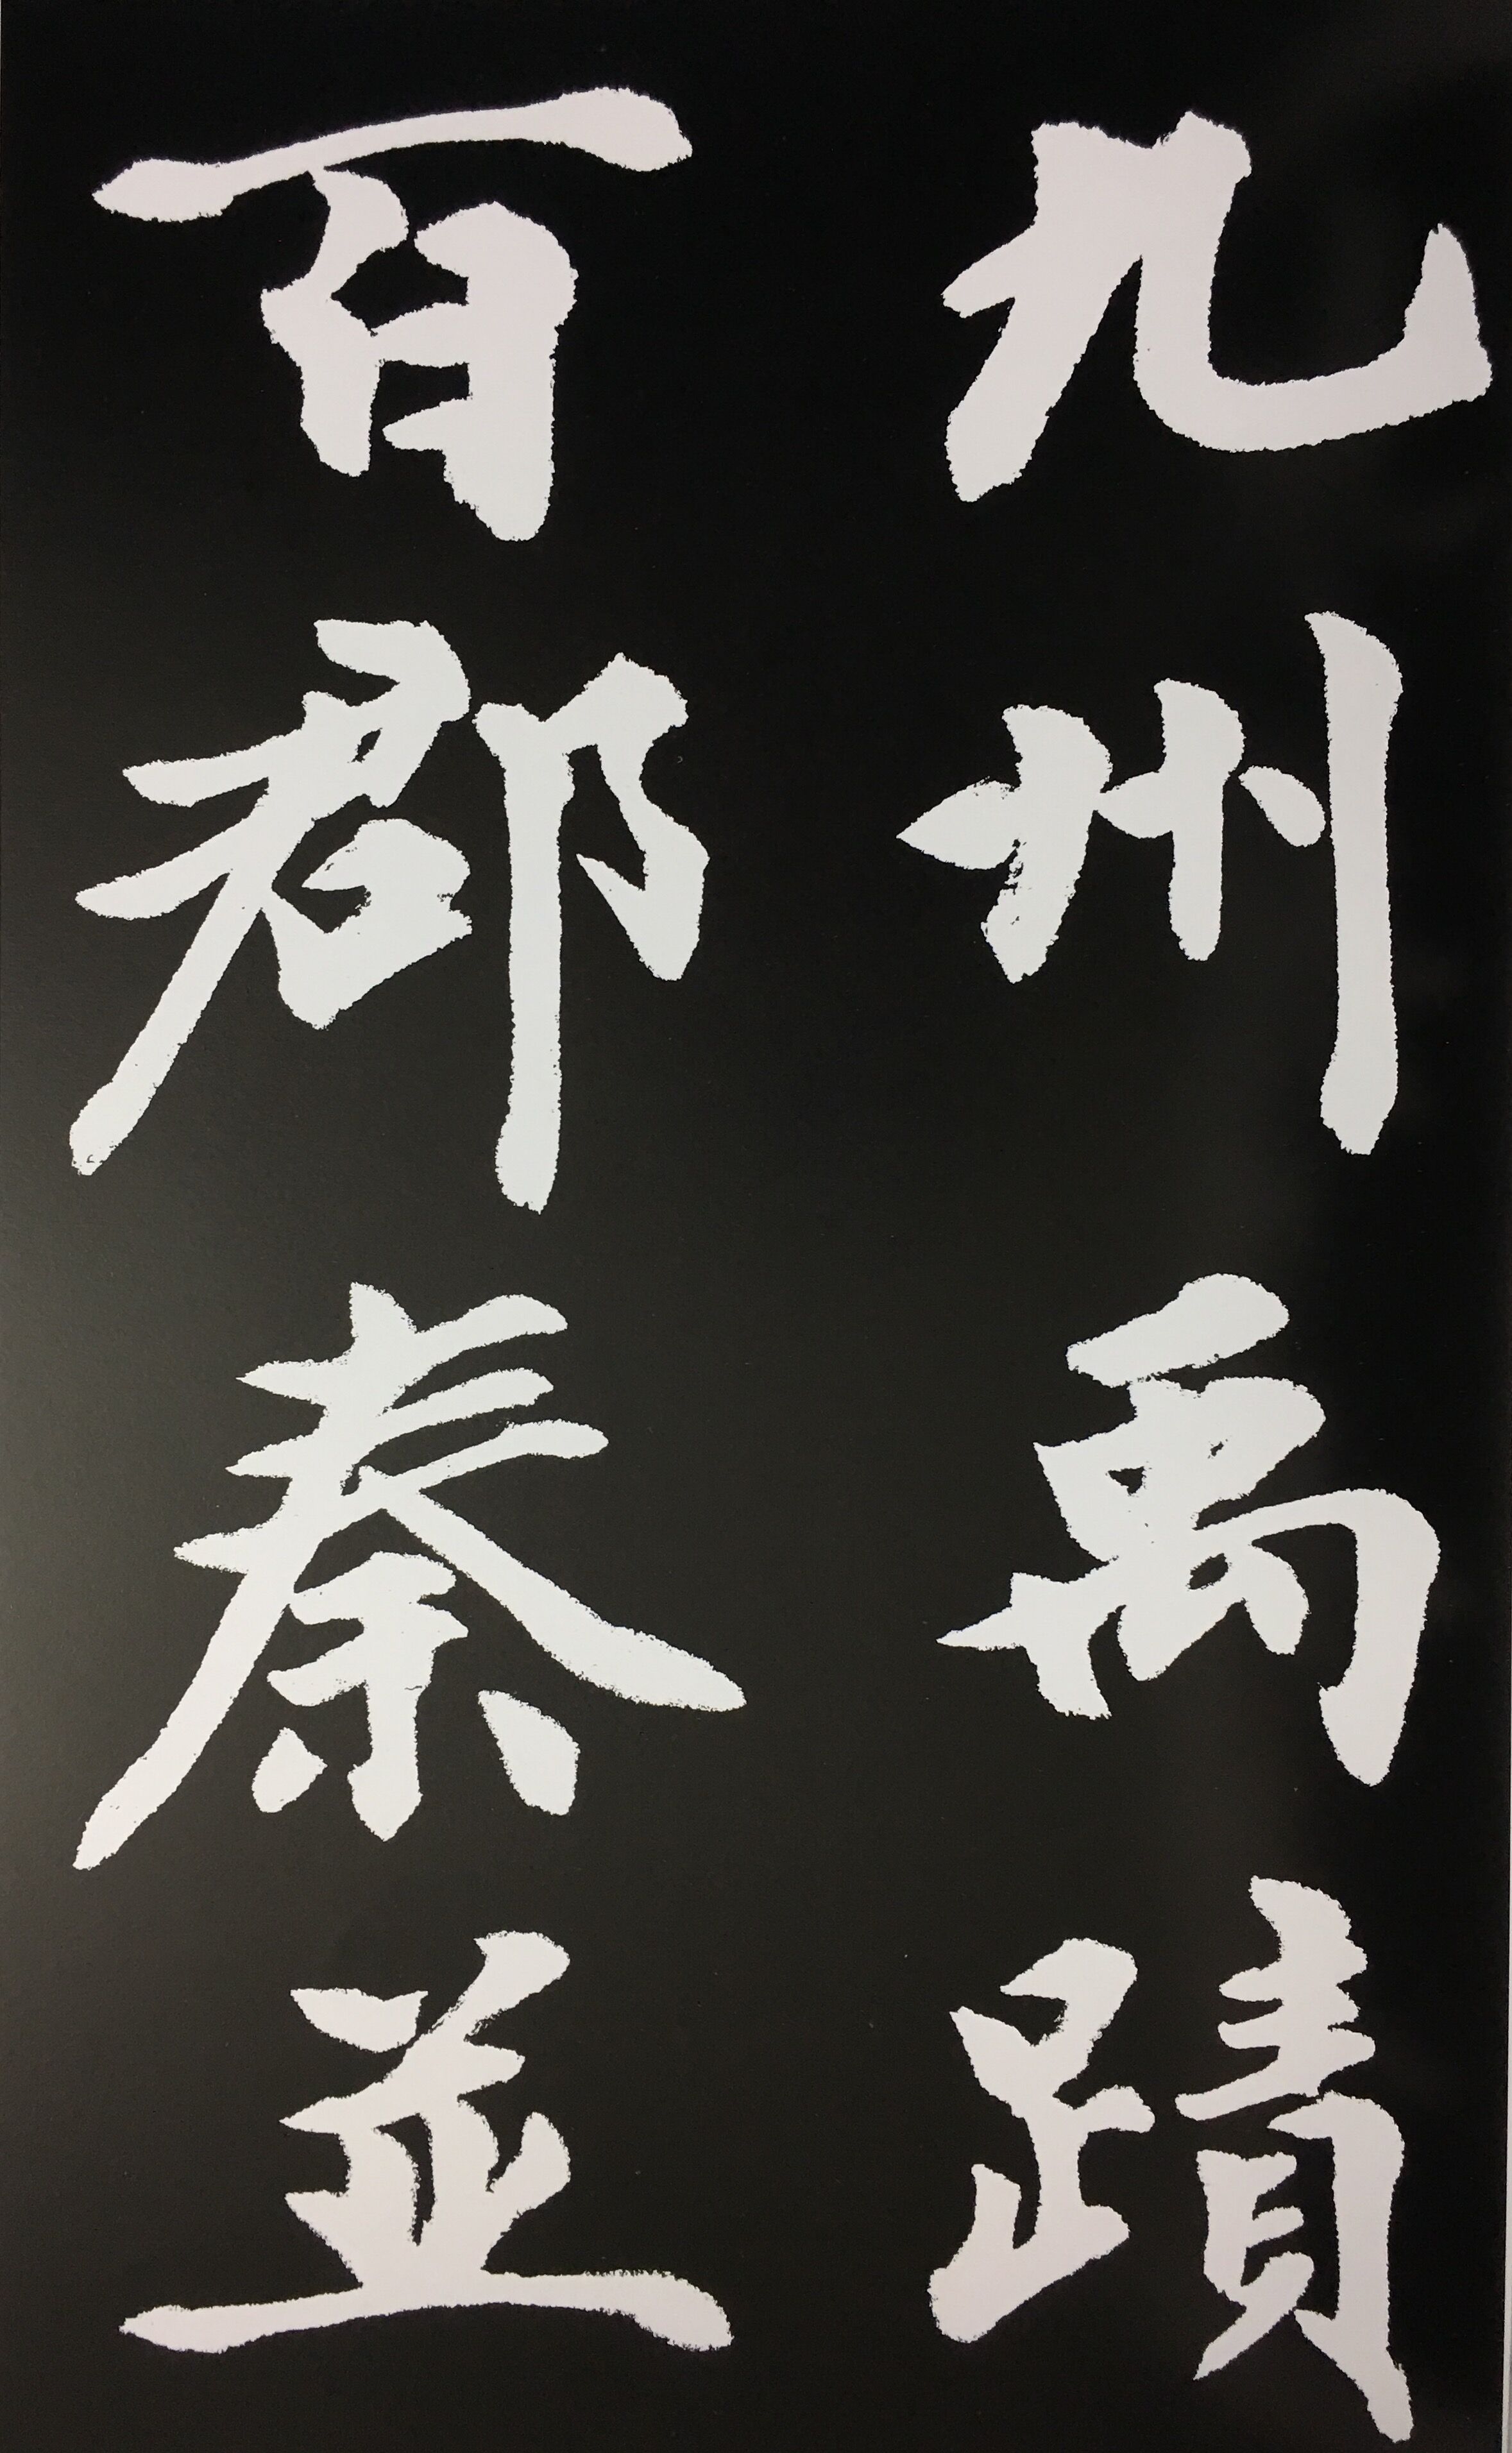 九州禹蹟
百郡秦並